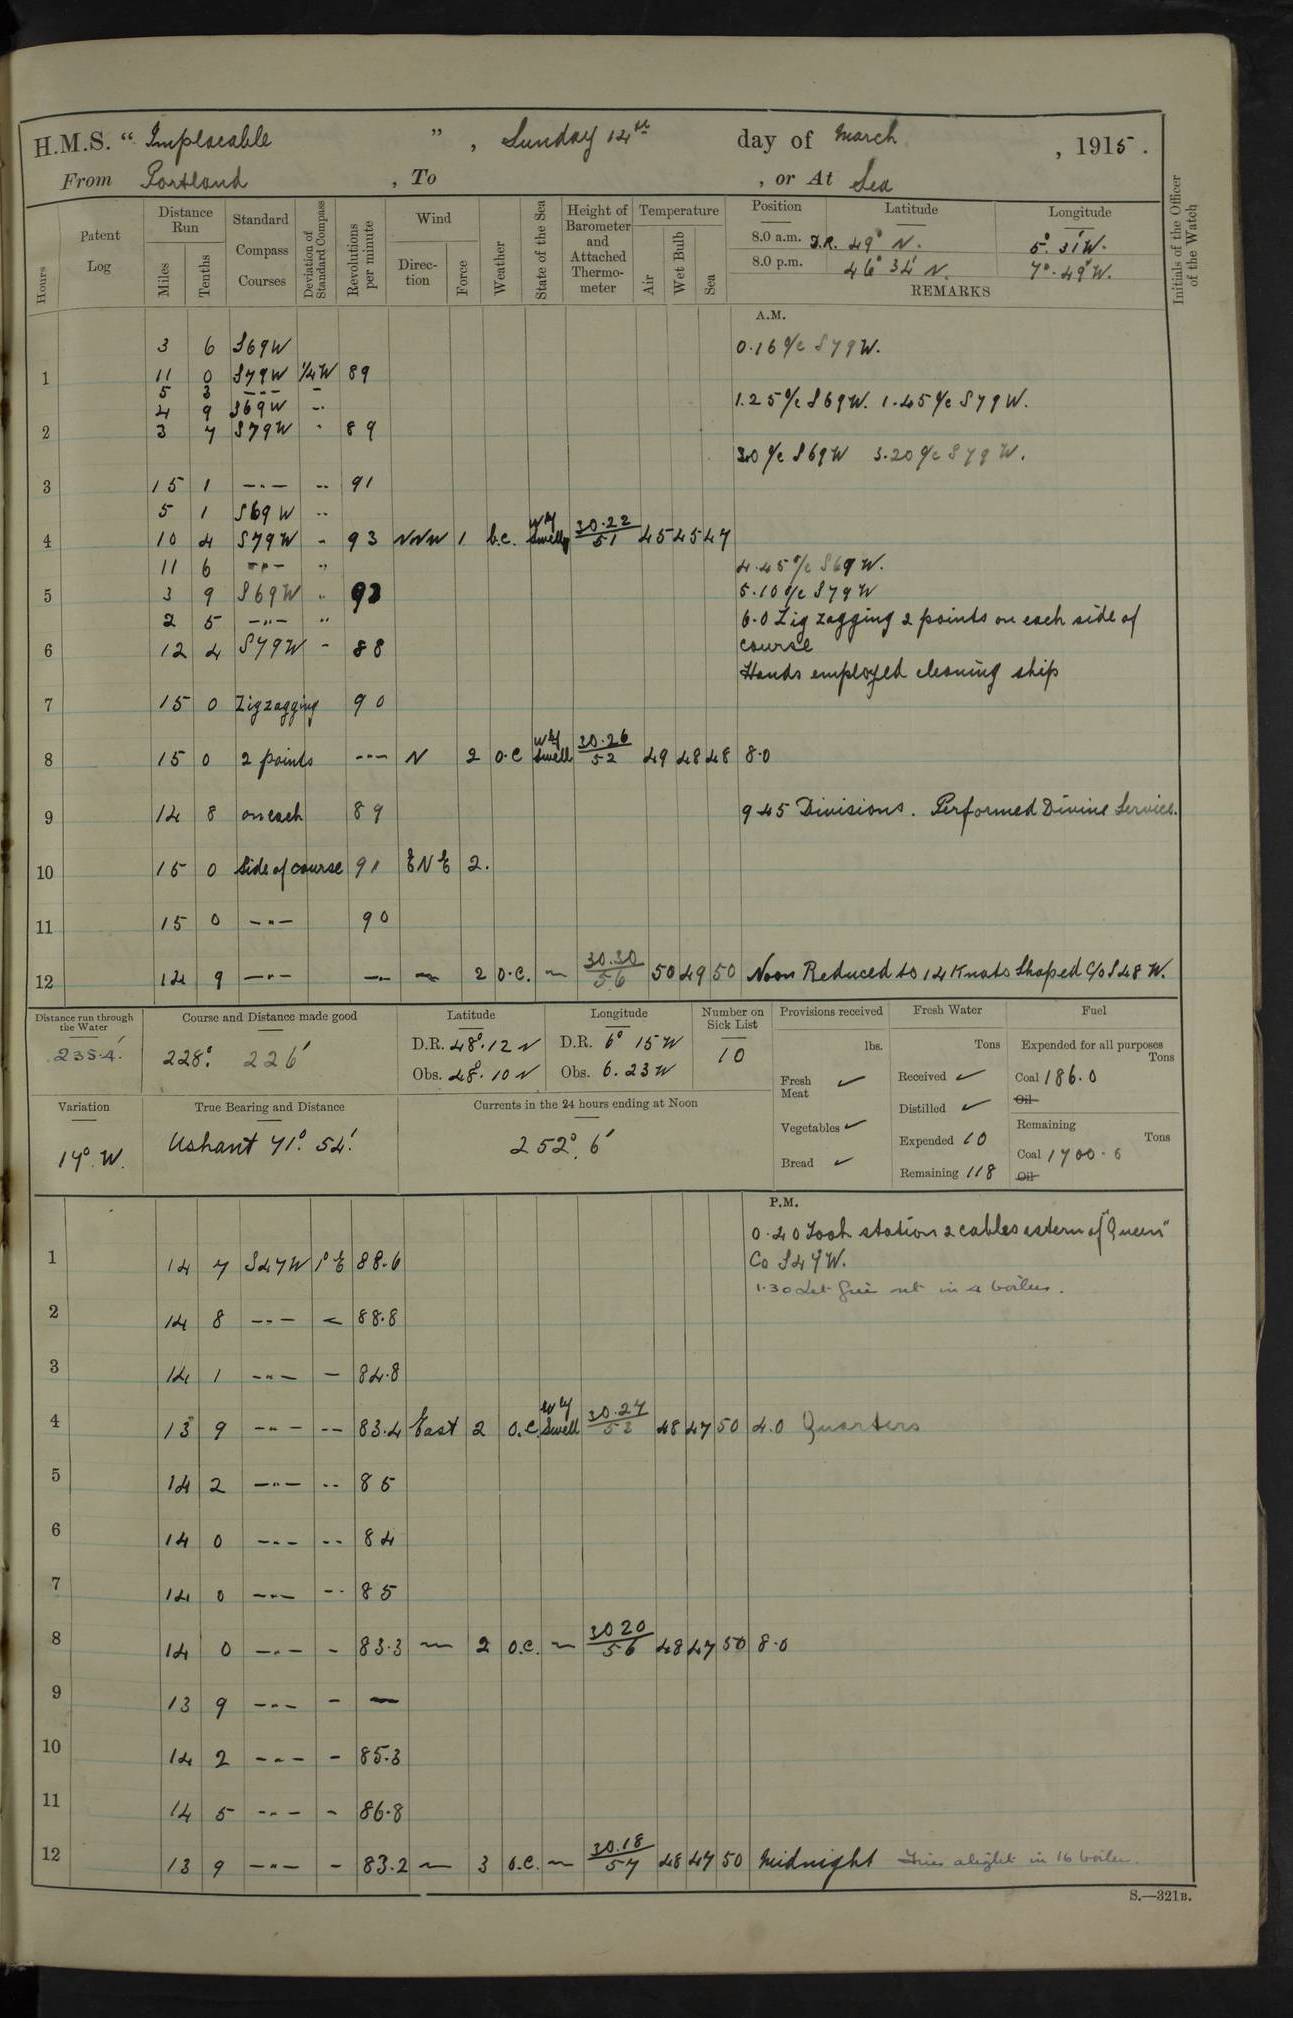 H.M.S. “ Implacable ” , Sunday 14th day of March , 1915 .
From Portland , To , or At Sea
Hours
Patent Log
Distance Run
Miles
Tenths
Standard Compass Courses
Deviation of Standard Compass
Revolutions per minute
Wind
Direction
Force
Weather
State of the Sea
Height of Barometer and Attached Thermometer
Temperature
Air
Wet Bulb
Sea
Position Latitude Longitude
8.0 a.m. D.R. 49° N. 5° 31' W.
8.0 p.m. 46° 34' N. 7° 49' W.
REMARKS
Initials of the Officer of the Watch
A.M.
3 6 S69W 0.16 a/c S79W.
1 11 0 S79W 1/4W 89
5 3 -"-
4 9 S69W -" 1.25 a/c S69W. 1.45 a/c S79W.
2 3 7 S79W " 89
3.0 a/c S69W 3.20 a/c S79W.
3 15 1 -"- " 91
5 1 S69W "
4 10 4 S79W - 93 NNW 1 b.c. Wly Swell 30.22/51 45 45 47
11 6 -"- " 4.45 a/c S69W.
5 3 9 S69W " 92 5.10 a/c S79W
2 5 -"- " 6.0 Zig zagging 2 points on each side of
6 12 4 S79W - 88 course
Hands employed cleaning ship
7 15 0 Zigzagging 90
8 15 0 2 points -"- N 2 o.c Wly Swell 30.26/52 49 48 48 8.0
9 14 8 on each 89 9 45 Divisions. Performed Divine Service.
10 15 0 side of course 91 ENE 2.
11 15 0 -"- 90
12 14 9 -"- -"- -"- 2 o.c. -"- 30.30/56 50 49 50 Noon Reduced to 14 Knots Shaped C/o S48W.
Distance run through the Water
235.4'
Course and Distance made good
228° 226'
Latitude
D.R. 48°.12 N
Obs. 48°.10 N
Longitude
D.R. 6° 15 W
Obs. 6. 23 W
Number on Sick List
10
Provisions received
lbs.
Fresh Meat ✓
Vegetables ✓
Bread ✓
Fresh Water
Tons
Received ✓
Distilled ✓
Expended 10
Remaining 118
Fuel
Expended for all purposes
Tons
Coal 186.0
Oil
Remaining
Tons
Coal 1700.6
Oil
Variation
14° W.
True Bearing and Distance
Ushant 71° 54'
Currents in the 24 hours ending at Noon
252° 6'
P.M.
0.40 Took station 2 cables astern of "Queen"
1 14 7 S47W 1°E 88.6 Co S47W.
1.30 Let fires out in 4 boilers.
2 14 8 -"- - 88.8
3 14 1 -"- - 84.8
4 13 9 -"- -- 83.4 East 2 o.c. Wly Swell 30.27/53 48 47 50 4.0 Quarters
5 14 2 -"- -- 85
6 14 0 -"- -- 84
7 14 0 -"- -- 85
8 14 0 -"- - 83.3 -"- 2 o.c. -"- 30 20/56 48 47 50 8.0
9 13 9 -"- - -"-
10 14 2 -"- - 85.3
11 14 5 -"- - 86.8
12 13 9 -"- - 83.2 -"- 3 o.c. -"- 30.18/57 48 47 50 Midnight Fires alight in 16 boilers.
S.—321B.